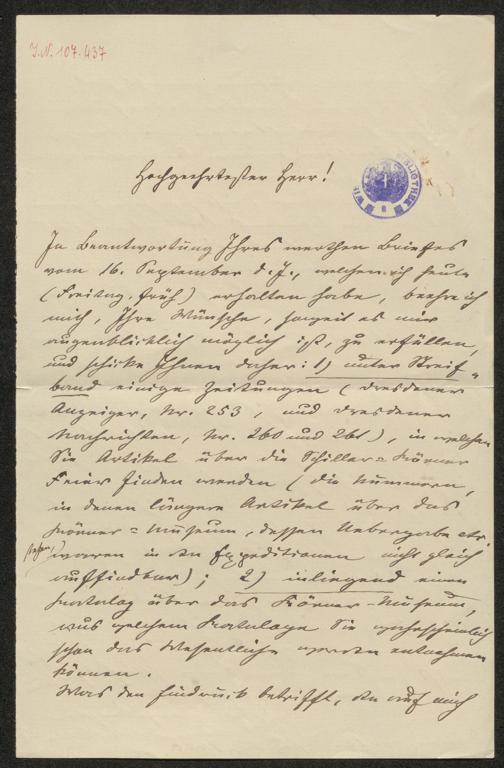 J.N. 107.437
Hochgeehrtester Herr!
In Beantwortung Ihres werthen Briefes
vom 16. September d. J., welchen ich heute
(Freitag, früh) erhalten habe, beehre ich
mich, Ihre Wünsche, soweit es mir
augenblicklich möglich ist, zu erfüllen,
und schicke Ihnen daher: 1) unter Streif-
band einige Zeitungen (Dresdener
Anzeiger, Nr. 253, und Dresdener
Nachrichten, Nr. 260 und 261), in welchen
Sie Artikel über die Schiller-Körner
Feier finden werden (die Nummern,
in denen längere Artikel über das
Körner-Museum, dessen Uebergabe etc.
waren in den Expeditionen nicht gleich
auffindbar); 2) inliegend einen
Katalog über das Körner-Museum,
aus welchem Kataloge Sie wahrscheinlich
schon das Wesentliche werden entnehmen
können.
Was den Eindruck betrifft, den auf mich